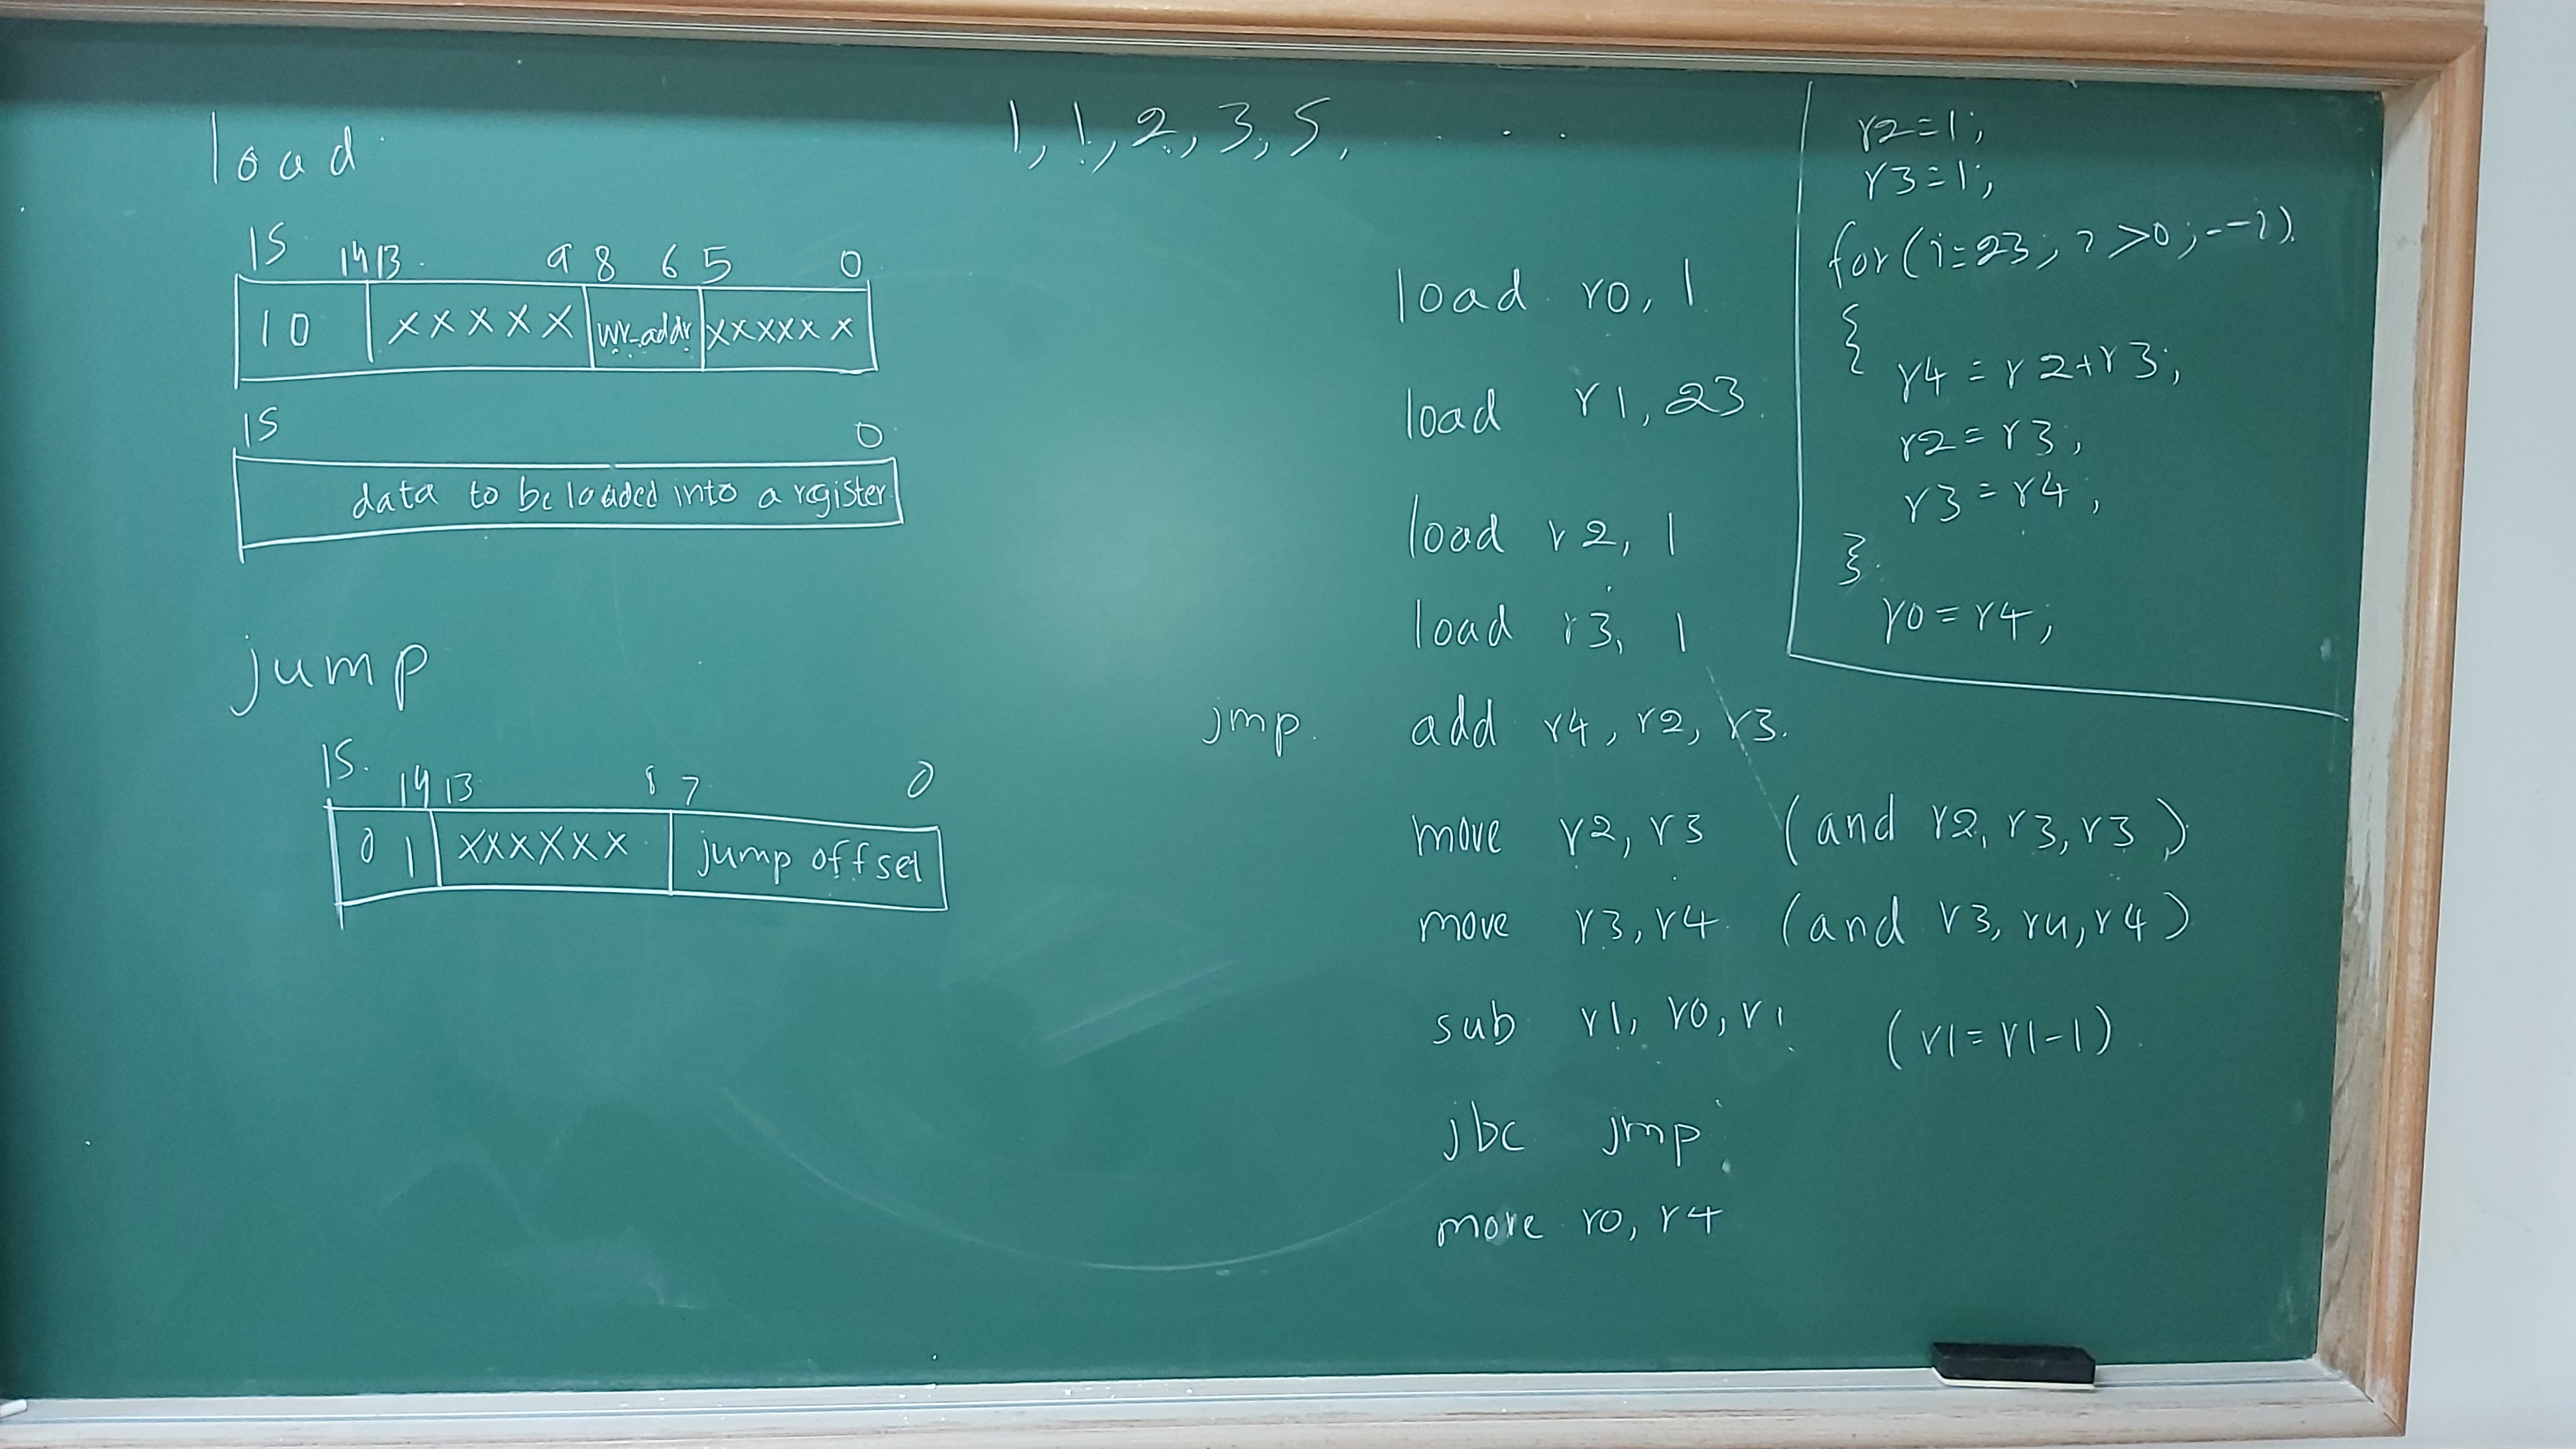 load
15 14 13 9 8 6 5 0
10 xxxxx wr_addr xxxxxx
15 0
data to be loaded into a register
jump
15 14 13 8 7 0
01 xxxxxx jump offset
1, 1, 2, 3, 5, ...
load r0, 1
load r1, 23
load r2, 1
load r3, 1
jmp add r4, r2, r3
move r2, r3 (and r2, r3, r3)
move r3, r4 (and r3, r4, r4)
sub r1, r0, r1 (r1 = r1 - 1)
jbc jmp
move r0, r4
r2=1;
r3=1;
for(i=23; i>0; --i)
{ r4 = r2+r3;
r2 = r3;
r3 = r4;
}
r0 = r4;